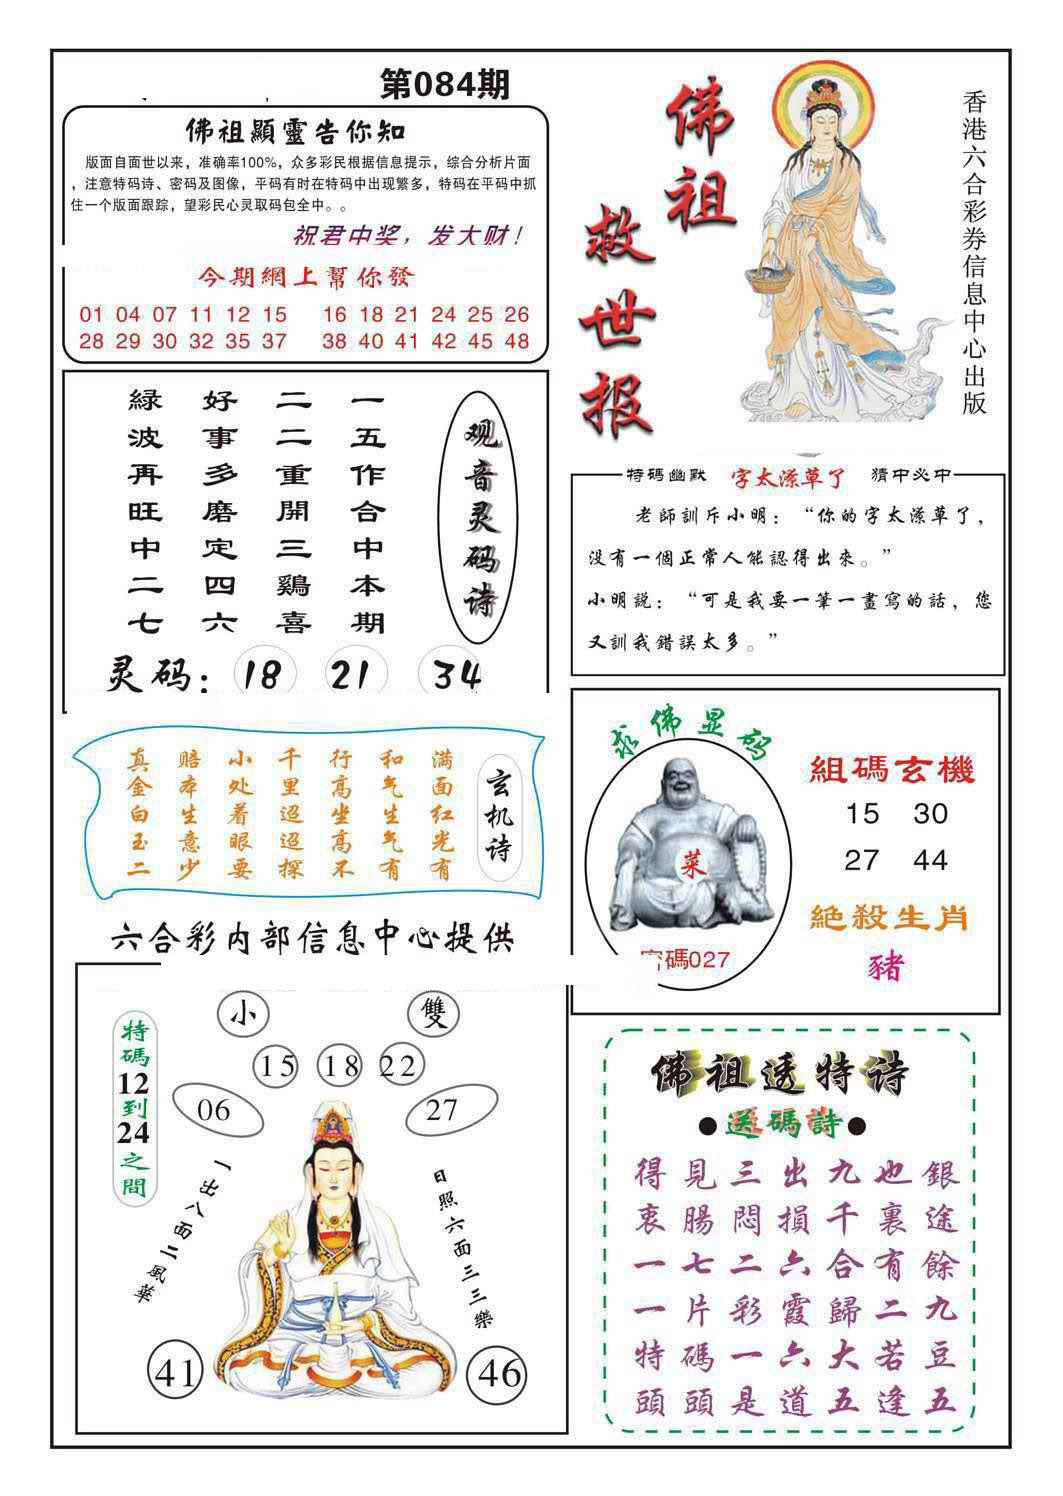 第084期
佛祖顯靈告你知
版面自面世以来，准确率100%，众多彩民根据信息提示，综合分析片面
，注意特码诗、密码及图像，平码有时在特码中出现繁多，特码在平码中抓
住一个版面跟踪，望彩民心灵取码包全中。。
祝君中奖，发大财！
今期網上幫你發
01 04 07 11 12 15 16 18 21 24 25 26
28 29 30 32 35 37 38 40 41 42 45 48
佛祖
救世报
香港六合彩券信息中心出版
观音灵码诗
一五作合中本期
二二重開三鷄喜
好事多磨定四六
緑波再旺中二七
灵码：18 21 34
特碼幽默 字太潦草了 猜中必中
老師訓斥小明：“你的字太潦草了，
没有一個正常人能認得出來。”
小明説：“可是我要一筆一畫寫的話，您
又訓我錯誤太多。”
玄机诗
满面红光有
和气生气有
行高坐高不
千里迢迢探
小处着眼要
赔本生意少
真金白玉二
六合彩内部信息中心提供
求佛显码
菜
密碼027
組碼玄機
15 30
27 44
絶殺生肖
豬
特碼12到24之間
小 雙
15 18 22
06 27
一出八面二風華
日照六面三三樂
41 46
佛祖透特诗
●送碼詩●
得見三出九也銀
衷腸悶損千裏途
一七二六合有餘
一片彩霞歸二九
特碼一六大若豆
頭頭是道五逢五